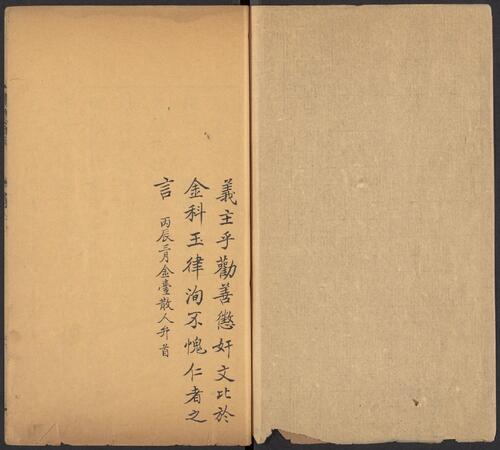 義主乎勸善懲奸文比於
金科玉律洵不愧仁者之
言 丙辰三月金臺散人弁首